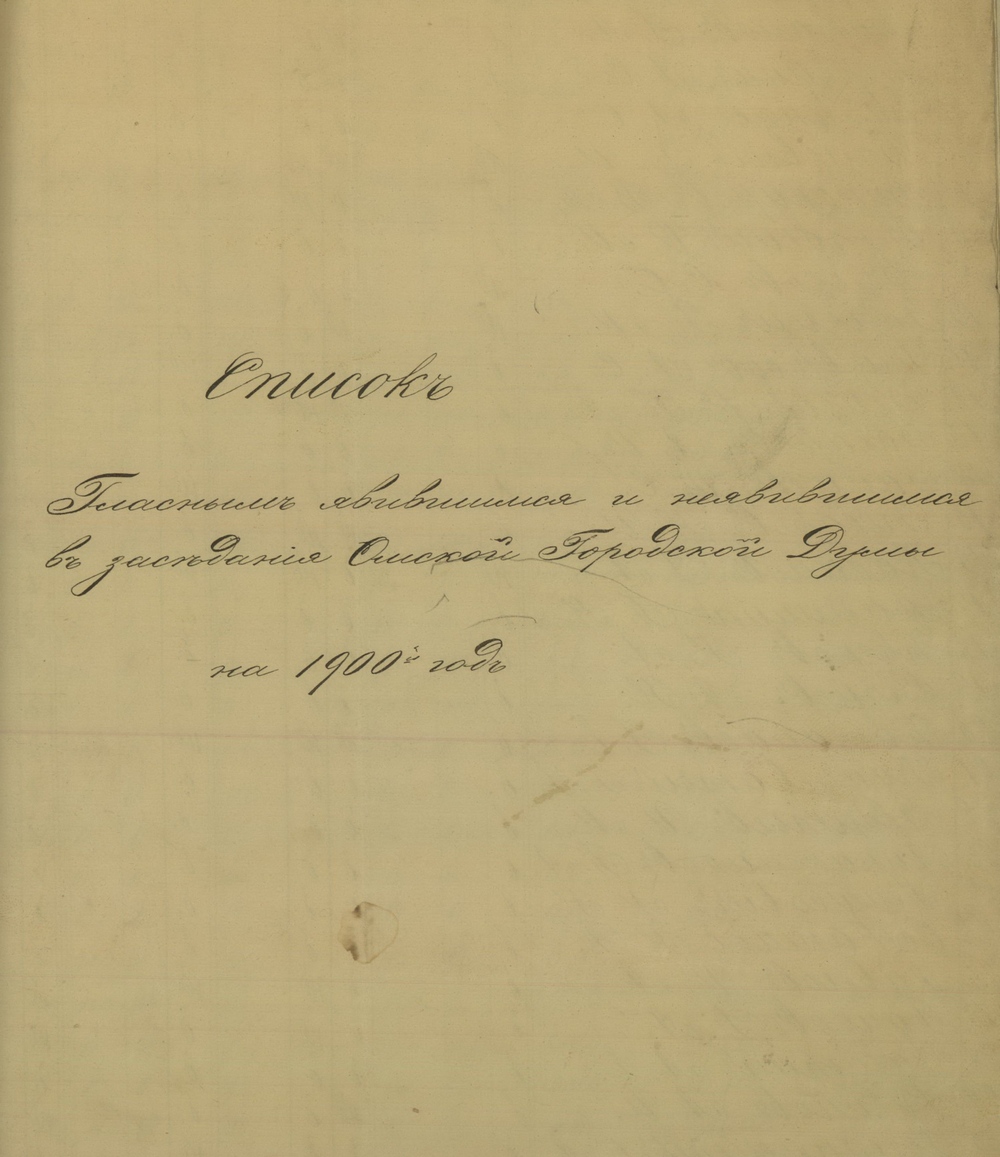 Списокъ
Гласнымъ явившимся и неявившимся
въ засѣданія Омской Городской Думы
на 1900й годъ